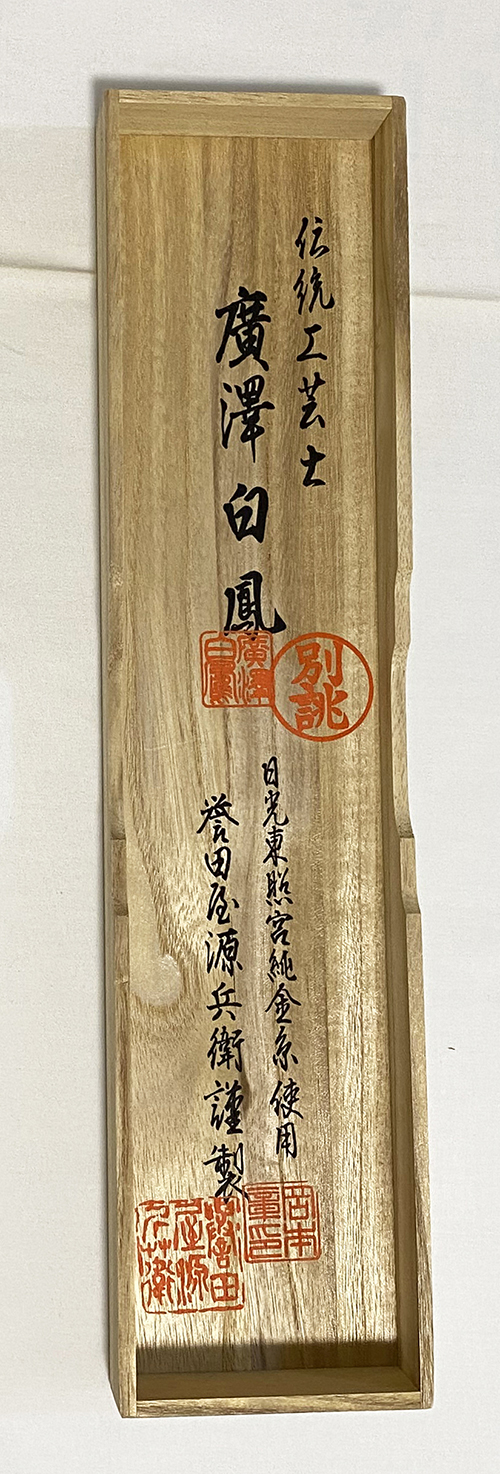 伝統工芸士
廣澤白鳳
別誂
廣澤
白鳳
日光東照宮純金糸使用
誉田屋源兵衛謹製
誉田
屋源
兵衛